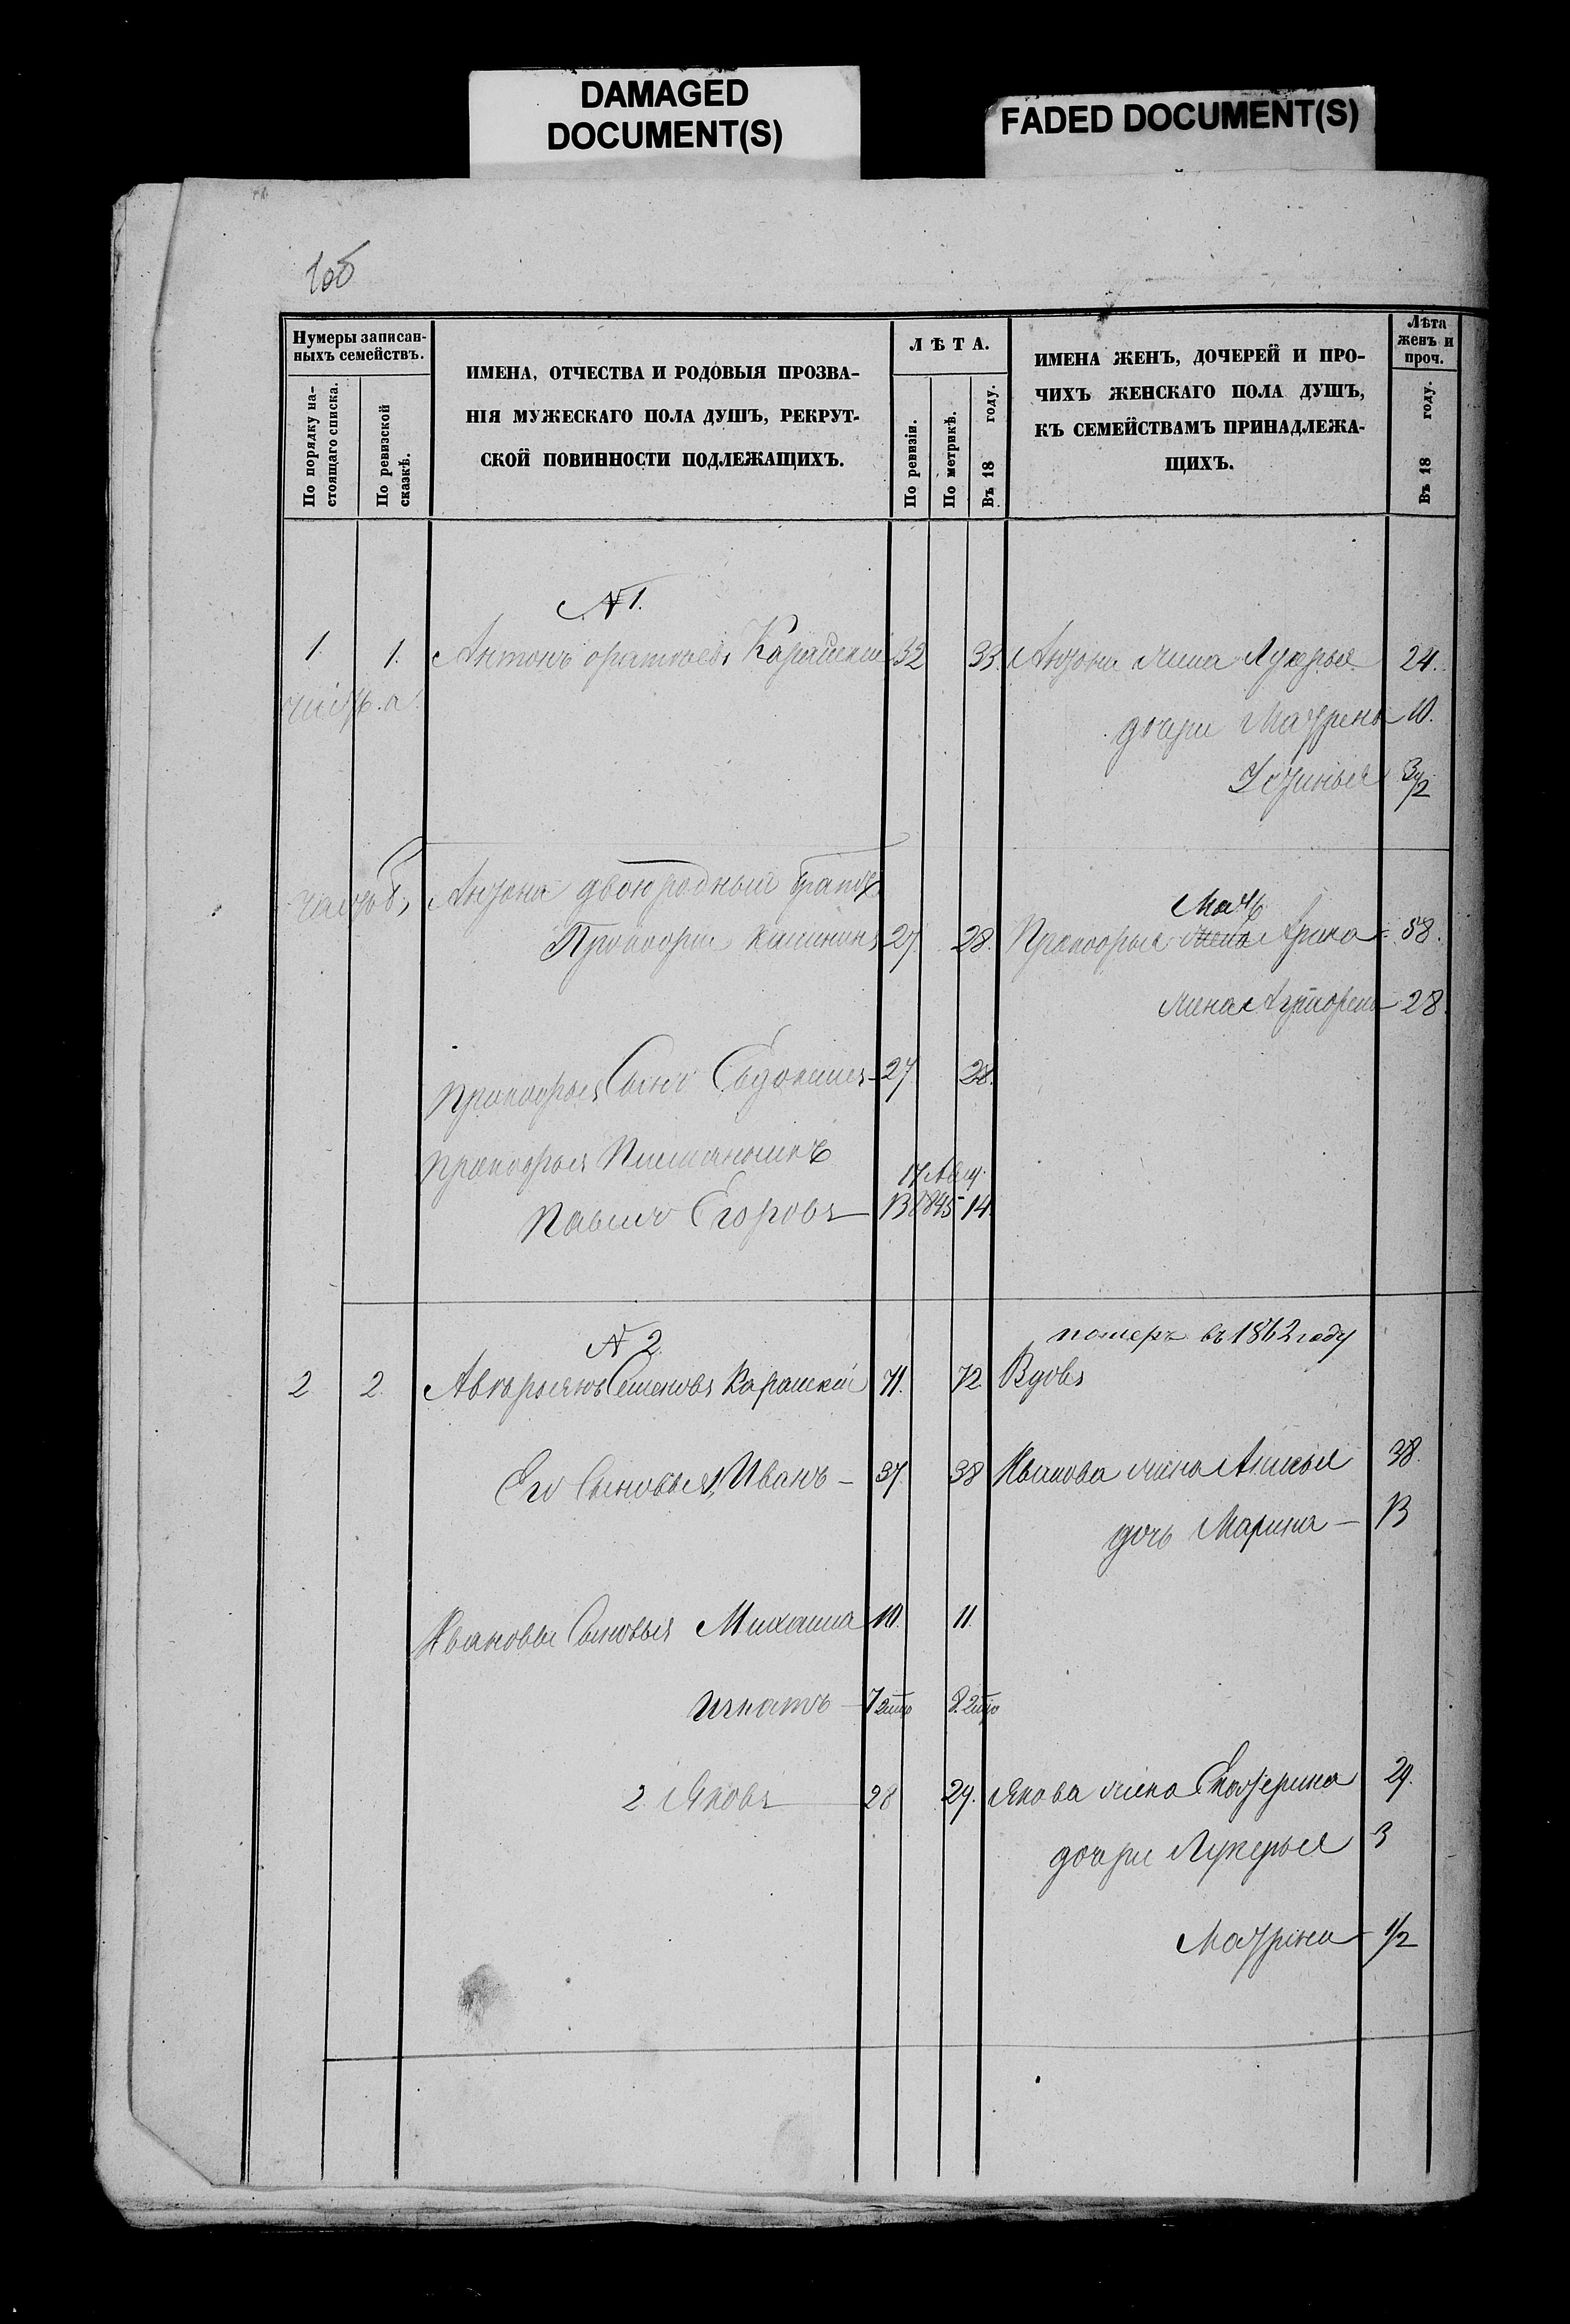 DAMAGED
DOCUMENT(S)
FADED DOCUMENT(S)
1об
Нумеры записан-
ныхъ семействъ.
По порядку на-
стоящаго списка.
По ревизской
сказкѣ.
ИМЕНА, ОТЧЕСТВА И РОДОВЫЯ ПРОЗВА-
НІЯ МУЖЕСКАГО ПОЛА ДУШЪ, РЕКРУТ-
СКОЙ ПОВИННОСТИ ПОДЛЕЖАЩИХЪ.
ЛѢТА.
По ревизіи.
По метрикѣ.
Въ 18 году.
ИМЕНА ЖЕНЪ, ДОЧЕРЕЙ И ПРО-
ЧИХЪ ЖЕНСКАГО ПОЛА ДУШЪ,
КЪ СЕМЕЙСТВАМЪ ПРИНАДЛЕЖА-
ЩИХЪ.
Лѣта
женъ и
проч.
Въ 18 году.
N 1.
1. 1. Антонъ 32 33. Антона жена Лукерья 24.
дочри Матрена 10.
Устинья 3 1/2
часть б, Антона двоюродный братъ
Мать
Прокофій 27. 28. Прокофья Арина 58.
жена 28.
Прокофья Сынъ Евдокимъ 27. 28.
Прокофья Племянникъ
17
Павелъ Егоровъ 1845 14.
N 2.
померъ въ 1862 году
2 2. Семеновъ Карамскій 71. 72. Вдовъ
Его Сыновья, 1, Иванъ 37. 38 Иванова жена Анисья 38.
дочь Марина 13
Ивановы Сыновья Михаила 10. 11.
Игнатъ 7 8.
2. Яковъ 28 29. Якова жена Екатерина 29.
дочри Лукерья 3
Матрена 1/2